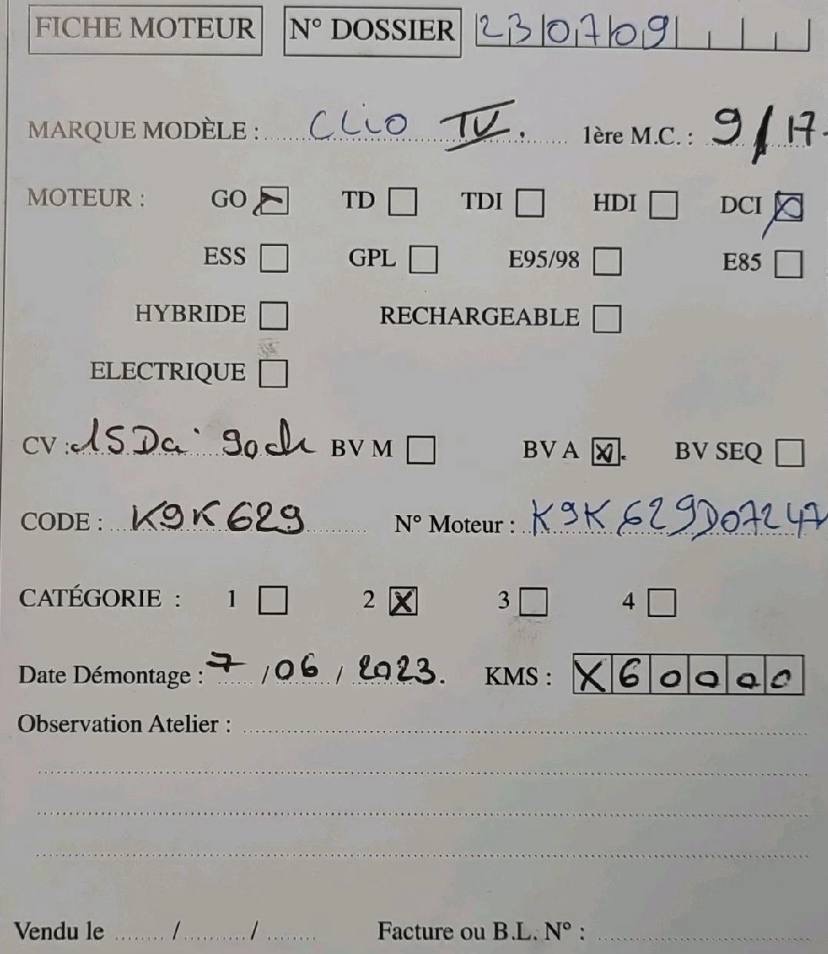 FICHE MOTEUR N° DOSSIER 230709
MARQUE MODÈLE : CLiO IV. 1ère M.C. : 9/17
MOTEUR : GO TD TDI HDI DCI
ESS GPL E95/98 E85
HYBRIDE RECHARGEABLE
ELECTRIQUE
CV : 1.5 Dci 90ch BV M BV A BV SEQ
CODE : K9K629 N° Moteur : K9K629D07247
CATÉGORIE : 1 2 X 3 4
Date Démontage : 7 / 06 / 2023. KMS : X60000
Observation Atelier :
Vendu le / / Facture ou B.L. N° :